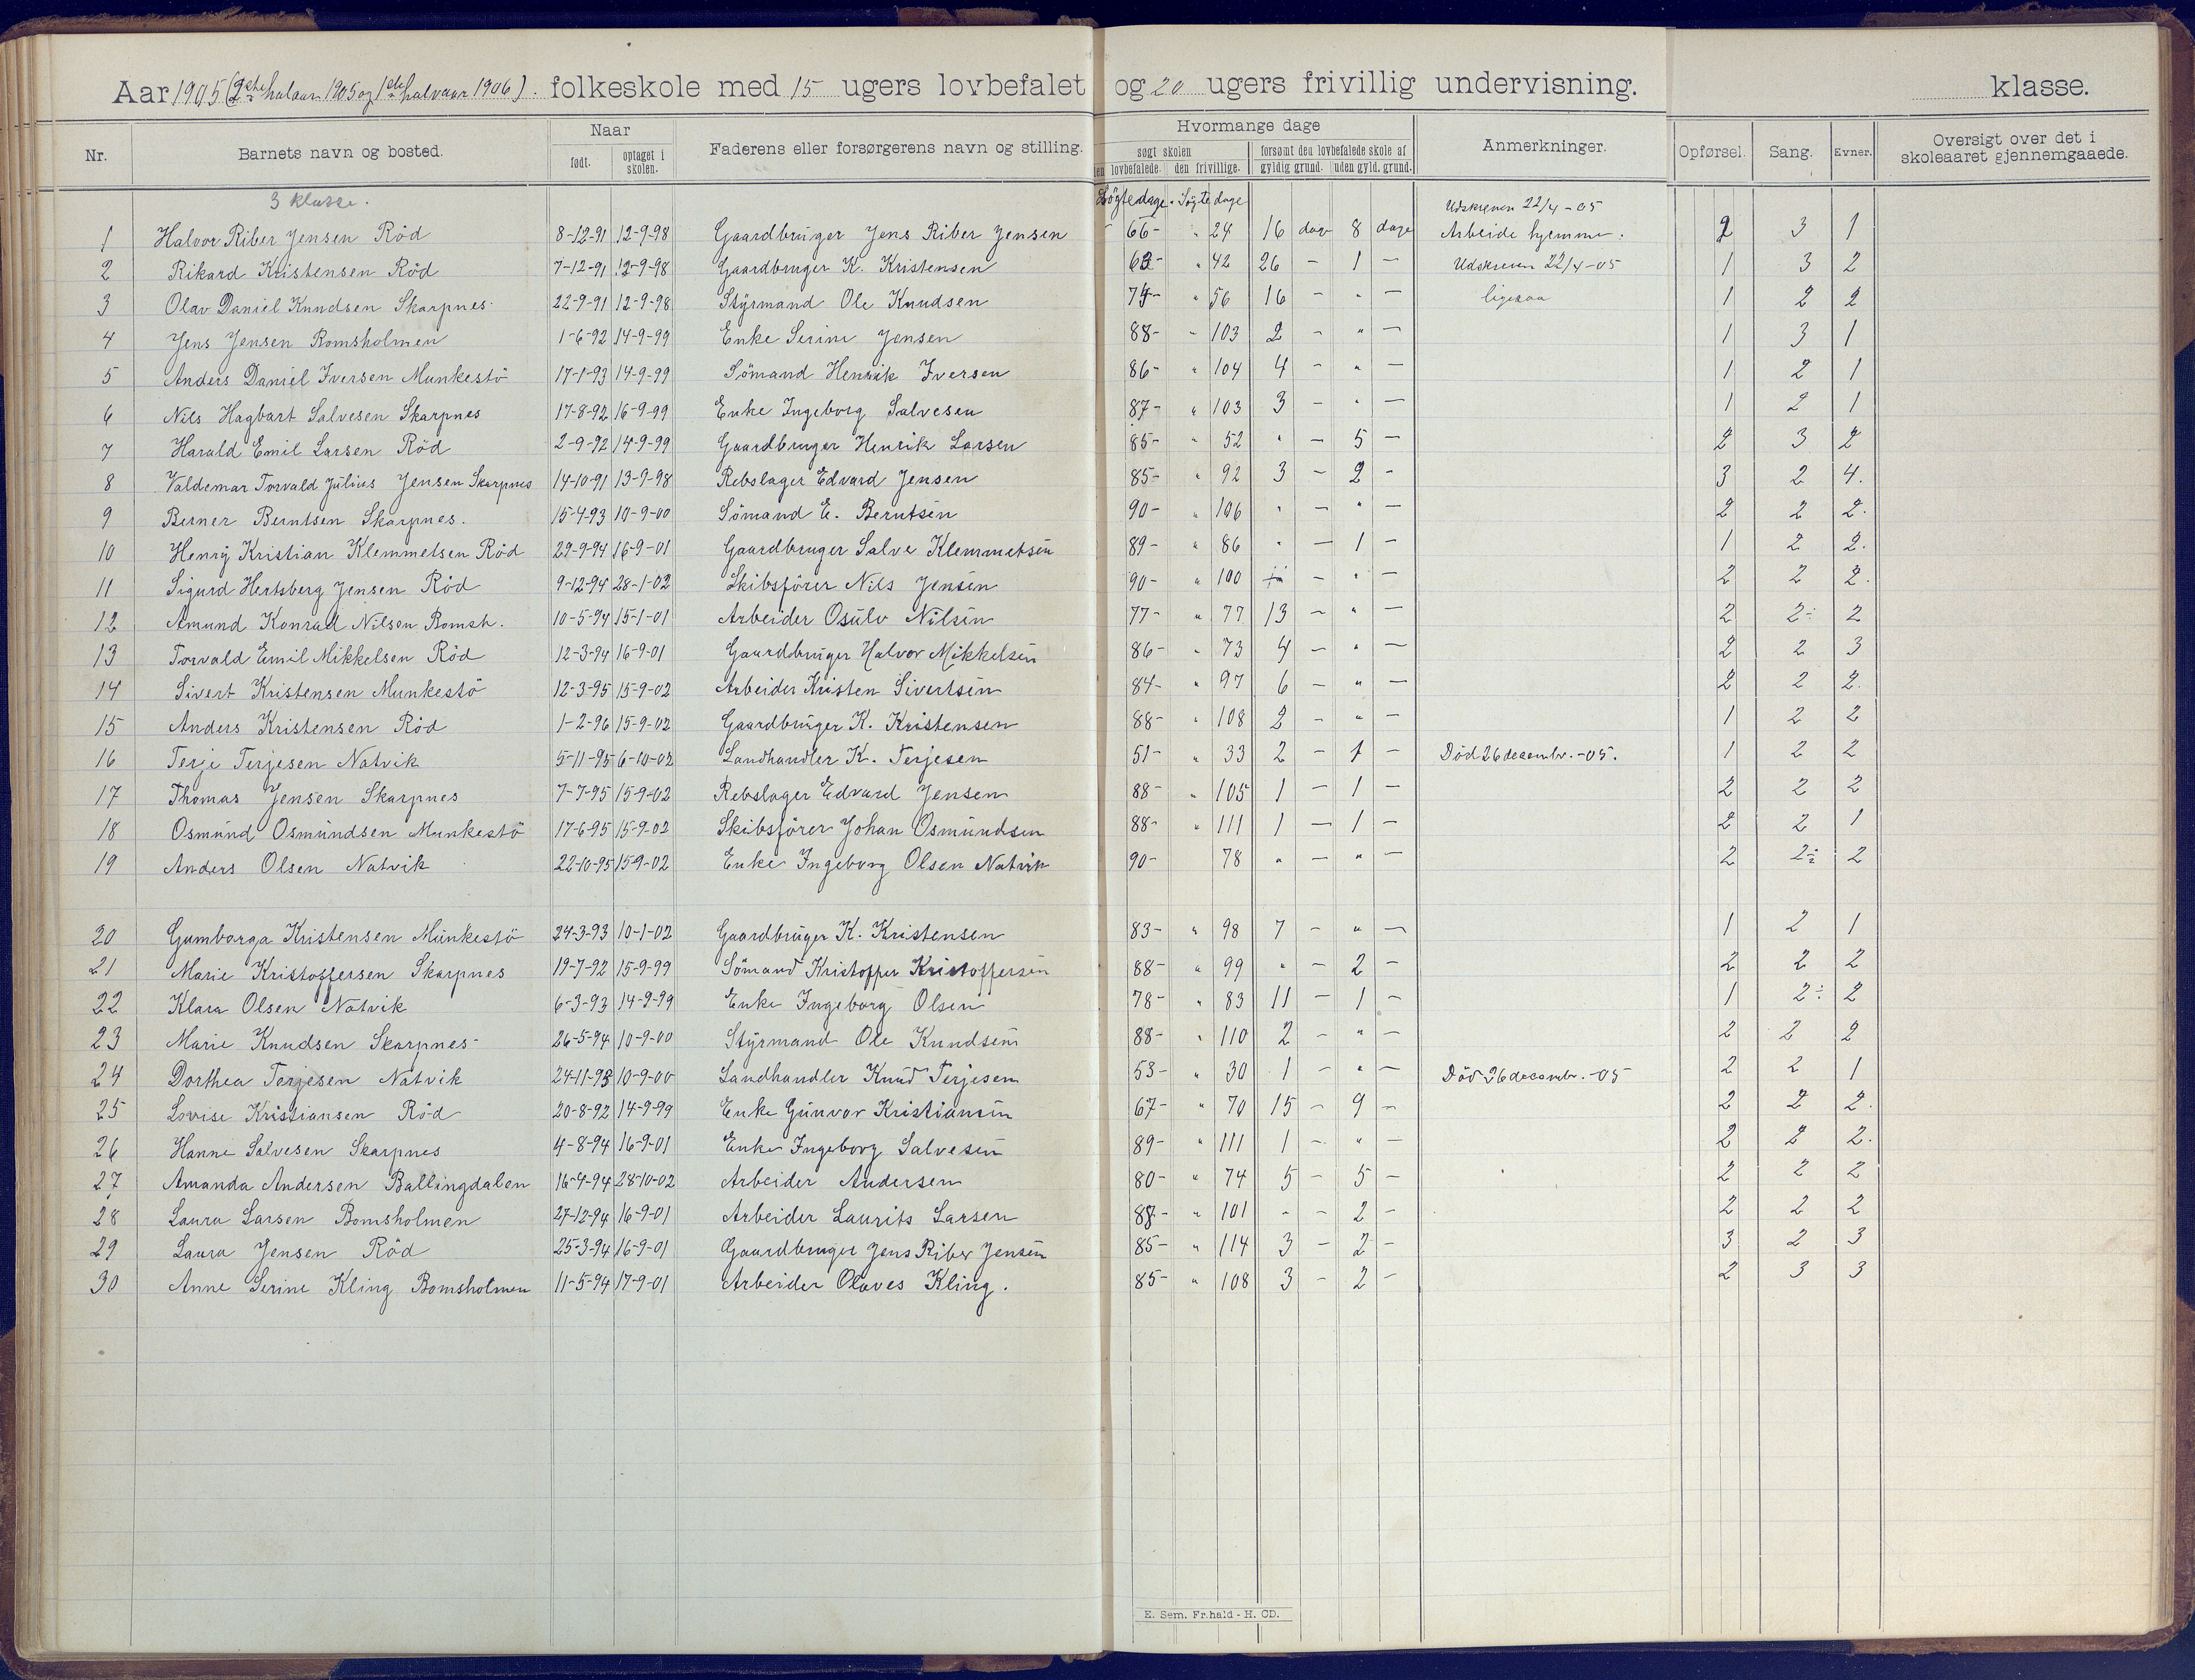 Aar 1905 (2det halvaar 1905 og 1ste halvaar 1906). folkeskole med 15 ugers lovbefalet og 20 ugers frivillig undervisning. klasse.
Nr. Barnets navn og bosted. Naar født. optaget i skolen. Faderens eller forsørgerens navn og stilling. Hvormange dage søgt skolen den lovbefalede. den frivillige. forsømt den lovbefalede skole af gyldig grund. uden gyld. grund. Anmerkninger. Opførsel. Sang. Evner. Oversigt over det i skoleaaret gjennemgaaede.
3 klasse. Søgte dage. Søgte dage
1 Halvor Riber Jensen Röd 8-12-91 12-9-98 Gaardbruger Jens Riber Jensen 66- " 24 16 dage 8 dage Udskreven 22/4-05 Arbeide hjemme. 2 3 1
2 Rikard Kristensen Röd 7-12-91 12-9-98 Gaardbruger K. Kristensen 63- " 42 26 - 1 - Udskreven 22/4-05 1 3 2
3 Olav Daniel Knudsen Skarpnes 22-9-91 12-9-98 Styrmand Ole Knudsen 74- " 56 16 - " - ligesaa 1 2 2
4 Jens Jensen Romsholmen 1-6-92 14-9-99 Enke Serine Jensen 88- " 103 2 - " - 1 3 1
5 Anders Daniel Iversen Munkestö 17-1-93 14-9-99 Sömand Henrik Iversen 86- " 104 4 - " - 1 2 1
6 Nils Hagbart Salvesen Skarpnes 17-8-92 16-9-99 Enke Ingeborg Salvesen 87- " 103 3 - " - 1 2 1
7 Harald Emil Larsen Röd 2-9-92 14-9-99 Gaardbruger Henrik Larsen 85- " 52 " - 5 - 2 3 2
8 Valdemar Torvald Julius Jensen Skarpnes 14-10-91 13-9-98 Rebslager Edvard Jensen 85- " 92 3 - 2 - 3 2 4.
9 Berner Berntsen Skarpnes. 15-4-93 10-9-00 Sömand E. Berntsen 90- " 106 " - " - 2 2 2.
10 Henry Kristian Klemmetsen Röd 29-9-94 16-9-01 Gaardbruger Salve Klemmetsen 89- " 86 " - 1 - 1 2 2.
11 Sigurd Hertsberg Jensen Röd 9-12-94 28-1-02 Skibsförer Nils Jensen 90- " 100 - " - 2 2 2.
12 Amund Konrad Nilsen Romsh. 10-5-94 15-1-01 Arbeider Osulv Nilsen 77- " 77 13 - " - 2 2÷ 2
13 Torvald Emil Mikkelsen Röd 12-3-94 16-9-01 Gaardbruger Halvor Mikkelsen 86- " 73 4 - " - 2 2 3
14 Sivert Kristensen Munkestö 12-3-95 15-9-02 Arbeider Kristen Sivertsen 84- " 97 6 - " - 2 2 2.
15 Anders Kristensen Röd 1-2-96 15-9-02 Gaardbruger K. Kristensen 88- " 108 2 - " - 1 2 2
16 Terje Terjesen Natvik 5-11-95 6-10-02 Landhandler K. Terjesen 51- " 33 2 - 1 - Död 26 decembr.-05. 1 2 2
17 Thomas Jensen Skarpnes 7-7-95 15-9-02 Rebslager Edvard Jensen 88- " 105 1 - 1 - 2 2 2
18 Osmund Osmundsen Munkestö 17-6-95 15-9-02 Skibsförer Johan Osmundsen 88- " 111 1 - 1 - 2 2 1
19 Anders Olsen Natvik 22-10-95 15-9-02 Enke Ingeborg Olsen Natvik 90- 78 " - " - 2 2÷ 2
20 Gumborga Kristensen Munkestö 24-3-93 10-1-02 Gaardbruger K. Kristensen 83- " 98 7 - " - 1 2 1
21 Marie Kristoffersen Skarpnes 19-7-92 15-9-99 Sömand Kristoffer Kristoffersen 88- " 99 " - 2 - 2 2 2
22 Klara Olsen Natvik 6-3-93 14-9-99 Enke Ingeborg Olsen 78- " 83 11 - 1 - 1 2÷ 2
23 Marie Knudsen Skarpnes 26-5-94 10-9-00 Styrmand Ole Knudsen 88- " 110 2 - " - 2 2 2
24 Dorthea Terjesen Natvik 24-11-93 10-9-00 Landhandler Knud Terjesen 53- " 30 1 - " - Död 26 decembr.-05 2 2 1
25 Lovise Kristiansen Röd 20-8-92 14-9-99 Enke Gunvor Kristiansen 67- " 70 15 - 9 - 2 2 2.
26 Hanne Salvesen Skarpnes 4-8-94 16-9-01 Enke Ingeborg Salvesen 89- " 111 1 - " - 2 2 2.
27 Amanda Andersen Ballingdalen 16-4-94 28-10-02 Arbeider Andersen 80- " 74 5 - 5 - 2 2 2
28 Laura Larsen Romsholmen 27-12-94 16-9-01 Arbeider Laurits Larsen 88- " 101 " - 2 - 2 2 2
29 Laura Jensen Röd 25-3-94 16-9-01 Gaardbruger Jens Riber Jensen 85- " 114 3 - 2 - 3 2 3
30 Anne Serine Kling Romsholmen 11-5-94 17-9-01 Arbeider Olaves Kling. 85- " 108 3 - 2 - 2 3 3
E. Sem. Fr.hald - H. CD.